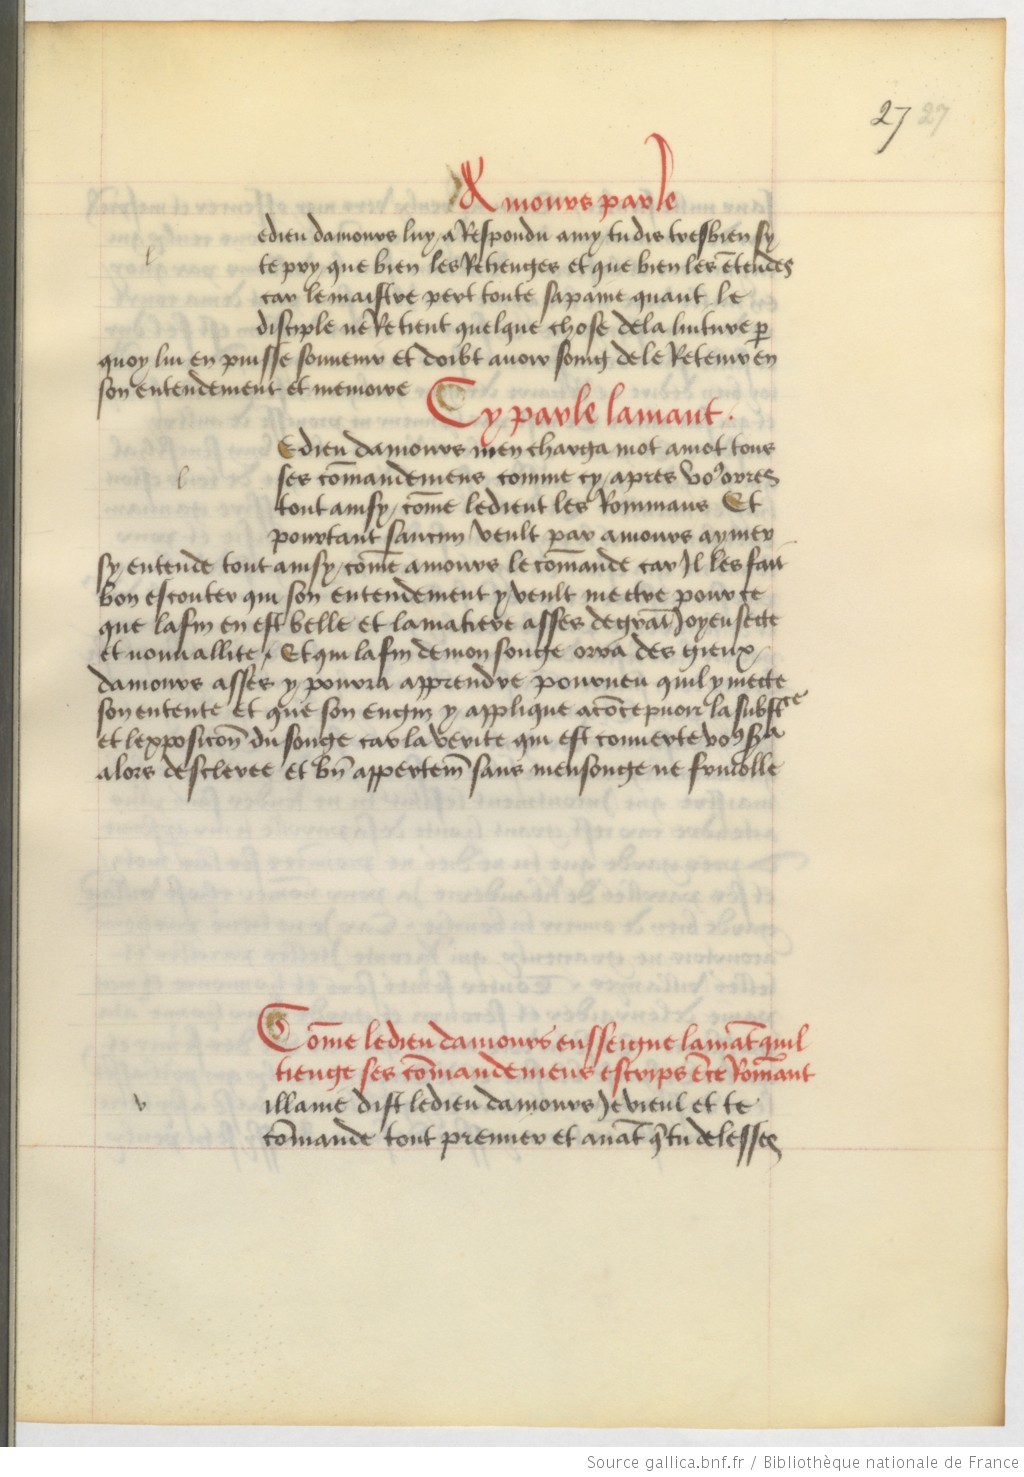 27 27
Amours parle
edieu damours luy a Respondu amy tu dis tresbien sy
te pry que bien les Retienges et que bien les ētendes
car le maistre pert toute sa paine quant le
disciple ne Retient quelque chose de la licture p
quoy lui en puisse souuenir et doibt auoir soing de le Retenir en
son entendement et memoire
Cy parle lamant .
Edieu damours men charga mot a mot tous
ses cōmandemens comme cy apres vo9 orres
tout ainsy cōme le dient les Rommans Et
pourtant saucun veult par amours aymer
sy entende tout ainsy cōme amours le cōmande car Jl les fait
bon escouter qui son entendement y veult mectre pour ce
que la fin en est belle et la matiere asses de grāt Joyeusete
et nouuallite . Et qui la fin de mon songe orra des gieux
damours asses y pourra apprendre pourueu quil y mecte
son entente et que son engin y applique a cōcepuoir la substce
et lexposicōn du songe car la verite qui est couuerte vo9 sera
alors descleree et bn appertemt sans mensonge ne friuolle
Cōme le dieu damours ensseigne lamāt quil
tienge ses cōmandemens escrips ēce Romāt
illame dist le dieu damours Je vieul et te
cōmande tout premier et auāt q tu delesses
l
l
v
Source gallica.bnf.fr / Bibliothèque nationale de France